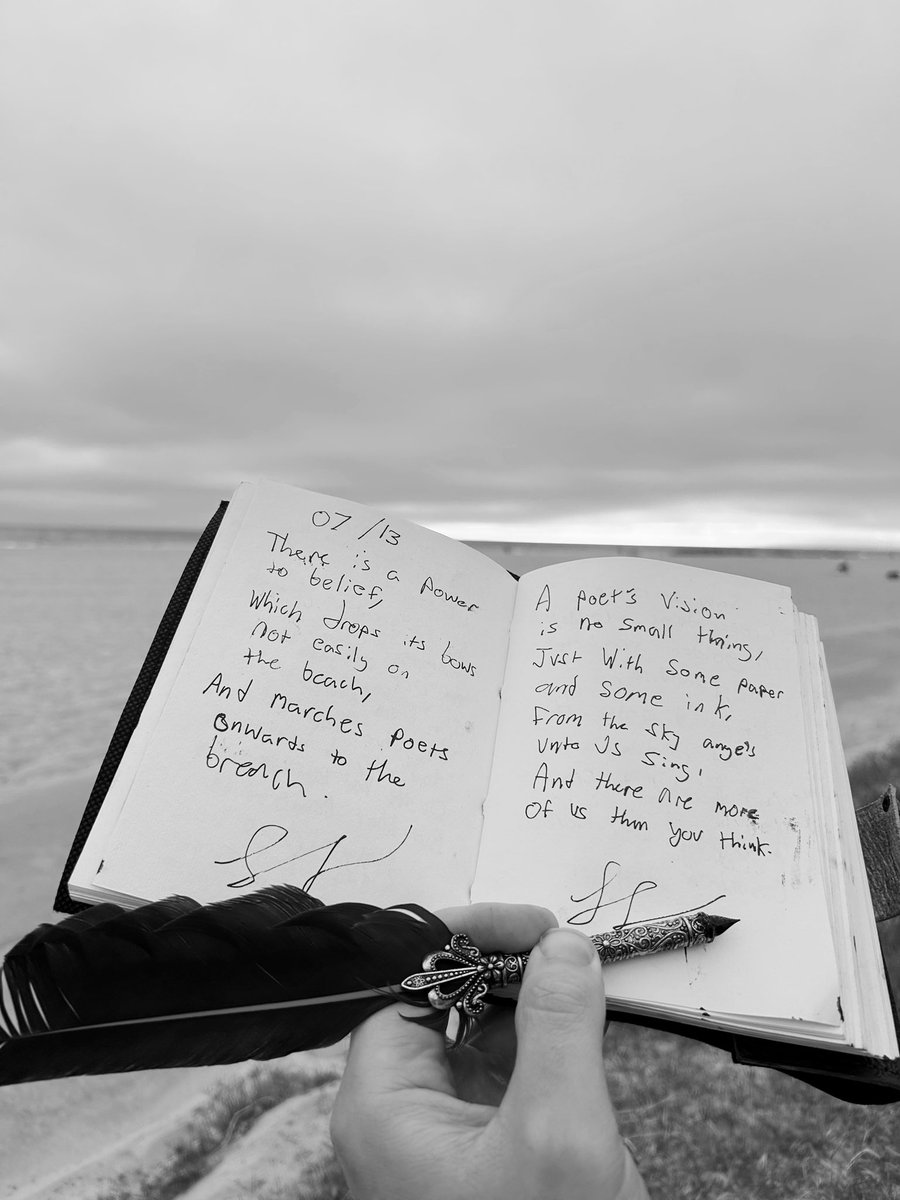 07/13
There is a power
to belief,
Which drops its bows
not easily on
the beach,
And marches poets
onwards to the
breach.
A poet's vision
is no small thing,
Just with some paper
and some ink,
From the sky angels
unto us sing,
And there are more
Of us than you think.